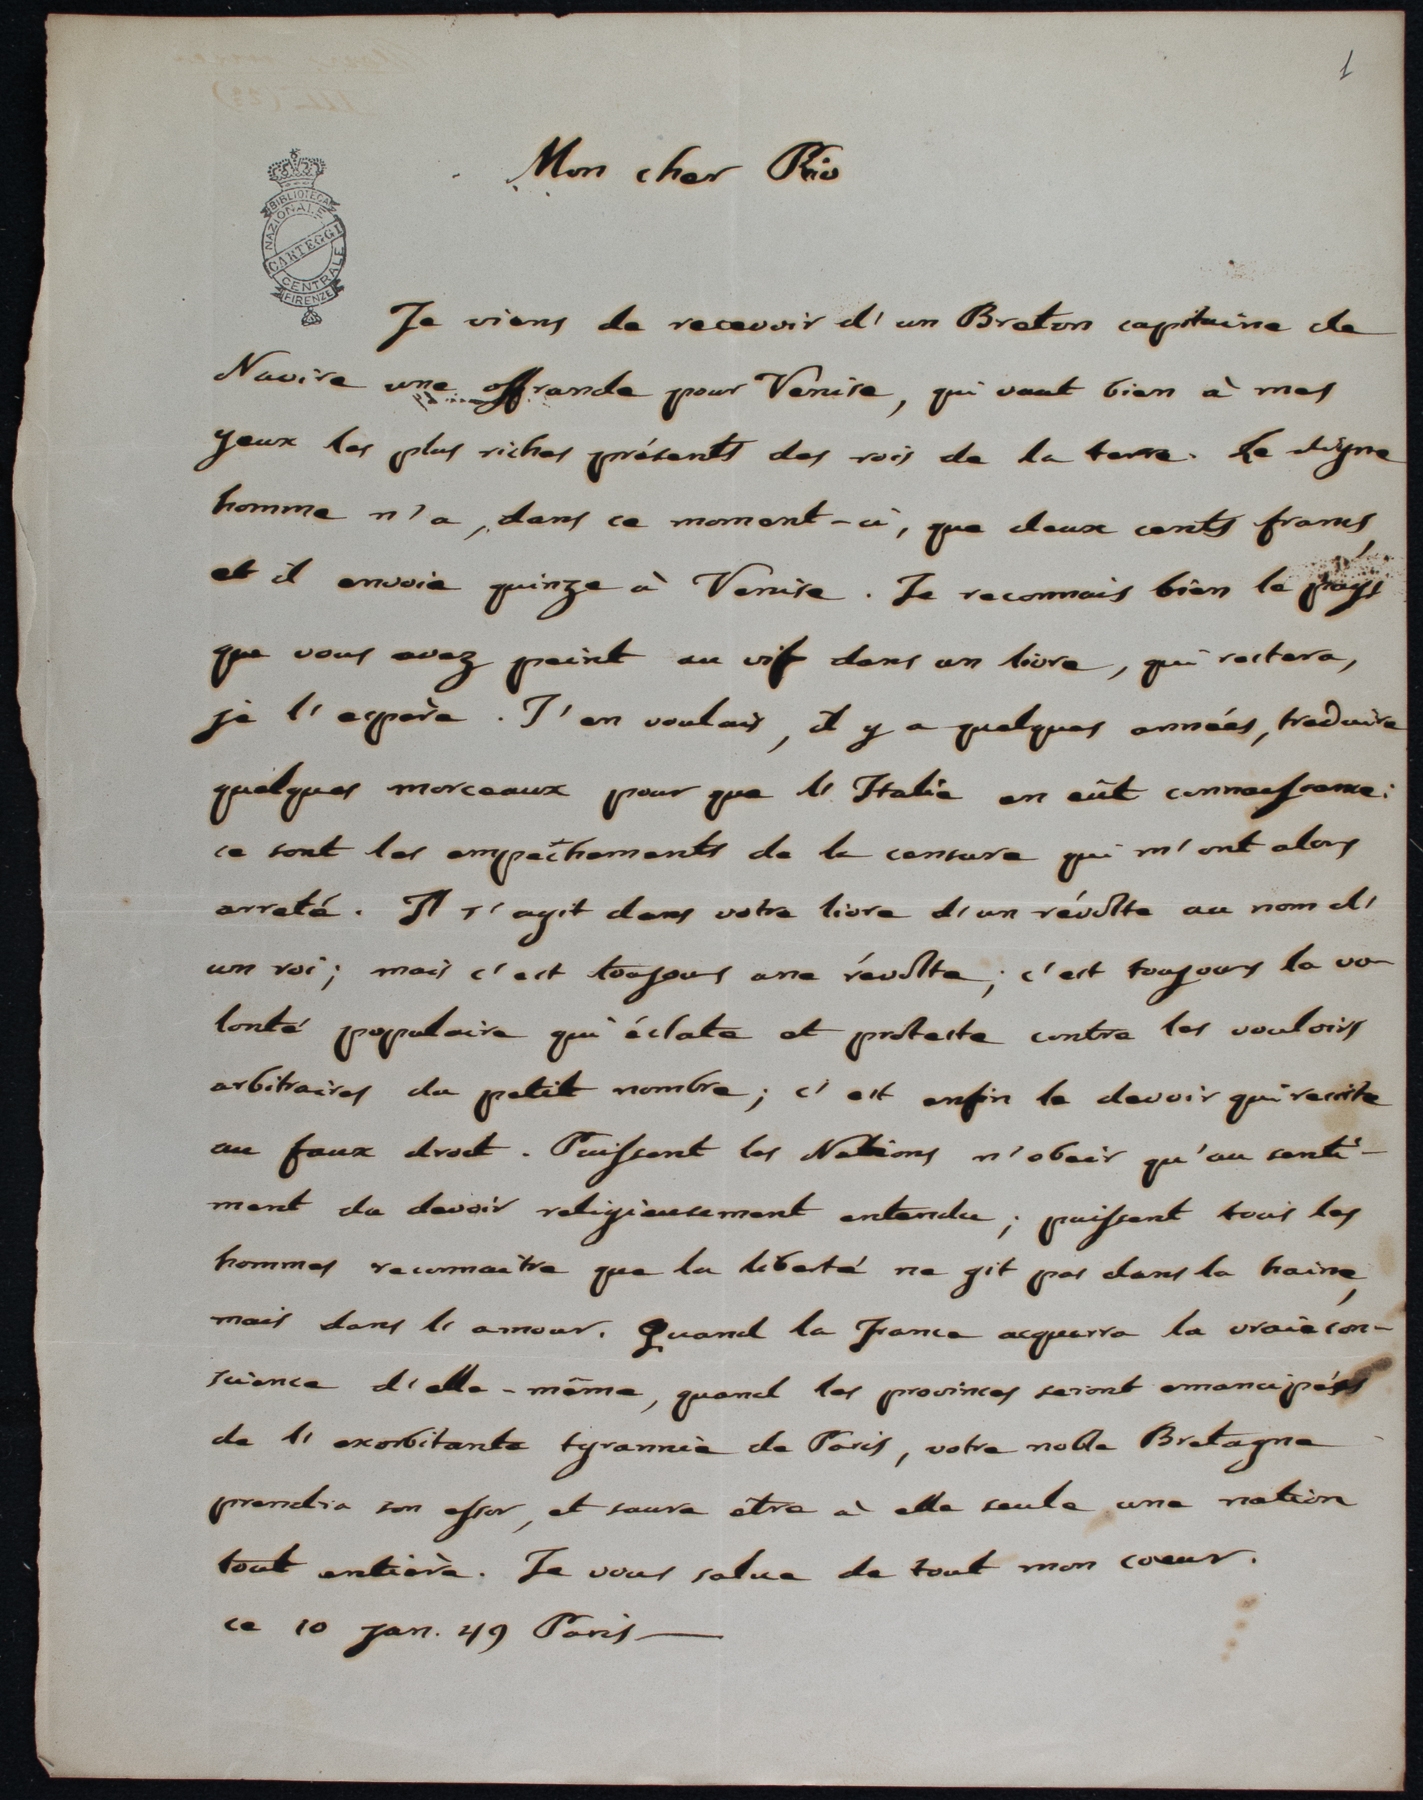 1
Mon cher Rio
BIBLIOTECA
NAZIONALE
CARTEGGI
CENTRALE
FIRENZE
Je viens de recevoir d'un Breton capitaine de
Navire une offrande pour Venise, qui vaut bien à mes
yeux les plus riches présents des rois de la terre. Le digne
homme n'a, dans ce moment-ci, que deux cents francs,
et il envoie quinze à Venise. Je reconnais bien le pays
que vous avez peint au vif dans un livre, qui restera,
je l'espère. J'en voulais, il y a quelques années, traduire
quelques morceaux pour que l'Italie en eût connaissance:
ce sont les empêchements de la censure qui m'ont alors
arreté. Il s'agit dans votre livre d'un révolte au nom d'
un roi; mais c'est toujours une révolte; c'est toujours la vo-
lonté populaire qui éclate et proteste contre les vouloirs
arbitraires du petit nombre; c'est enfin le devoir qui resiste
au faux droit. Puissent les Nations n'obeir qu'au senti-
ment du devoir religieusement entendu; puissent tous les
hommes reconnaitre que la liberté ne git pas dans la haine,
mais dans l'amour. Quand la France acquerra la vraie con-
science d'elle-même, quand les provinces seront emancipées
de l'exorbitante tyrannie de Paris, votre noble Bretagne
prendra son essor, et saura être à elle seule une nation
tout entière. Je vous salue de tout mon coeur.
ce 10 Jan. 49 Paris